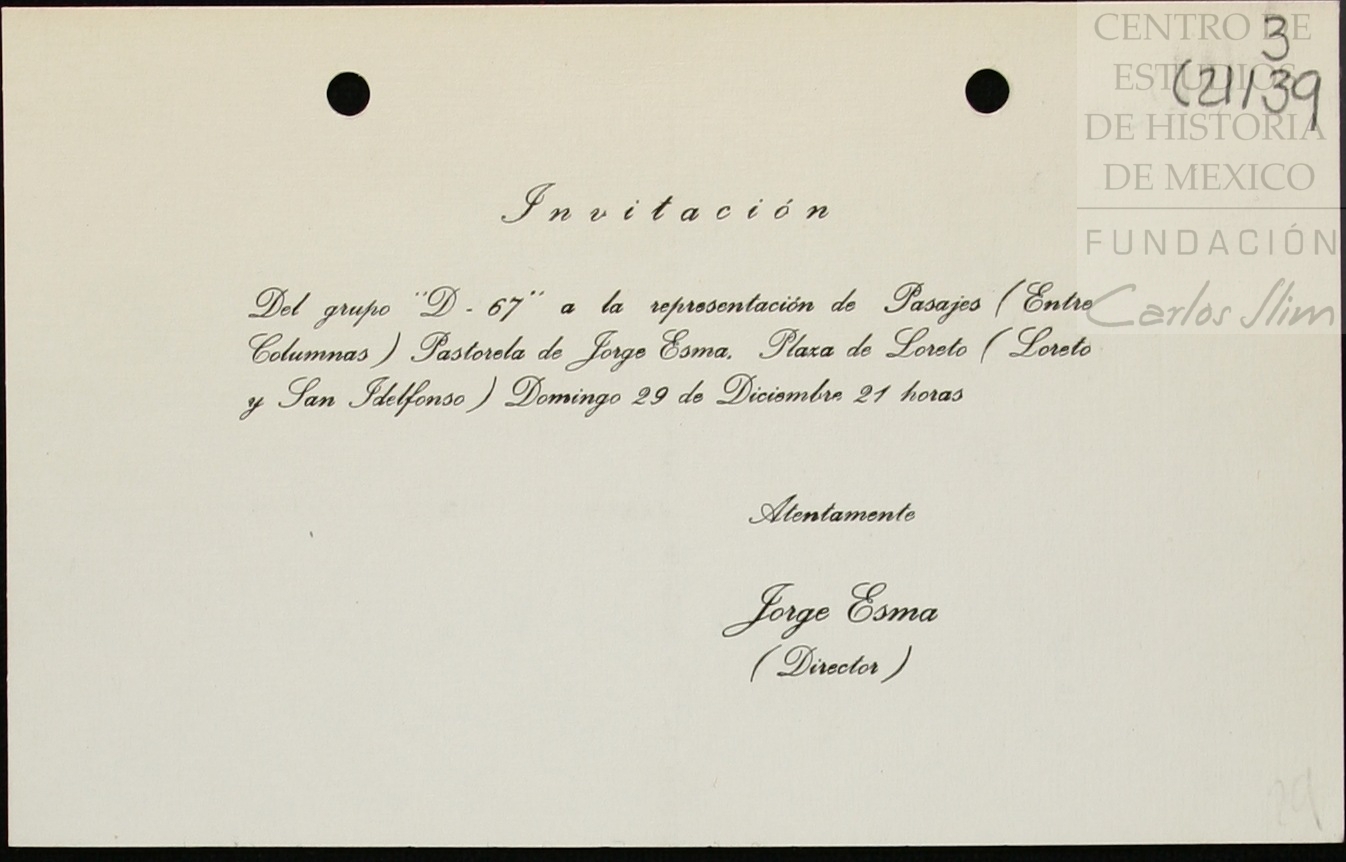 CENTRO DE
ESTUDIOS
DE HISTORIA
DE MEXICO
FUNDACIÓN
Carlos Slim
3
(21)39
Invitación
Del grupo "D - 67" a la representación de Pasajes (Entre
Columnas) Pastorela de Jorge Esma. Plaza de Loreto (Loreto
y San Idelfonso) Domingo 29 de Diciembre 21 horas
Atentamente
Jorge Esma
(Director)